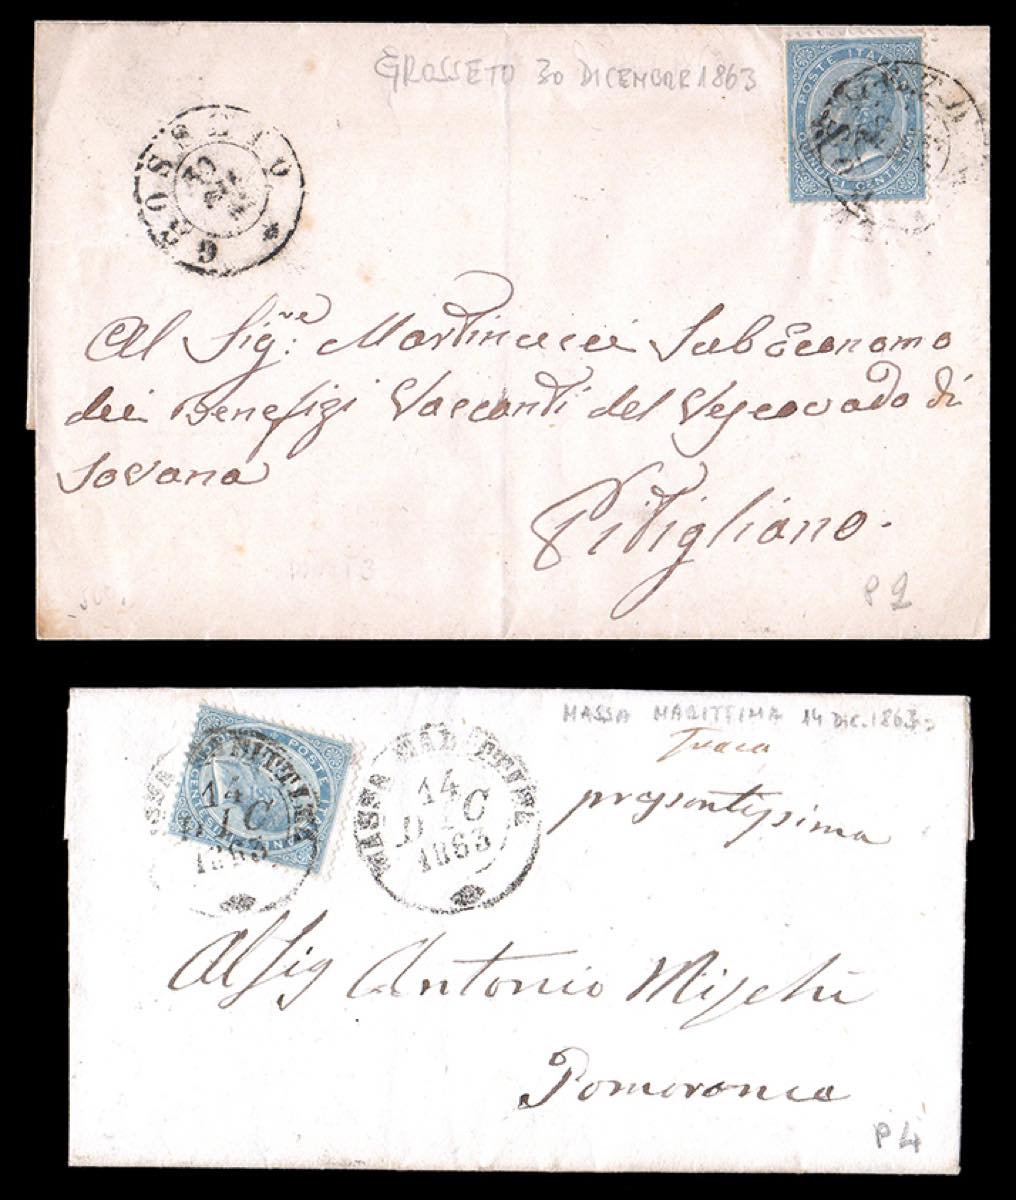 GROSSETO 30 DICEMBRE 1863
POSTE ITALIANE
QUINDICI CENTESIMI
GROSSETO
30
DIC
Al Sig.re Martinucci SubEconomo
dei Benefizi Vaccanti del Vescovado di
Sovana
Pitigliano.
P 2
MASSA MARITTIMA 14 DIC. 1863
presentissima
MASSA MARITTIMA
14
DIC
1863
MASSA MARITTIMA
14
DIC
1863
Al Sig Antonio Mischi
Pomerance
P 4